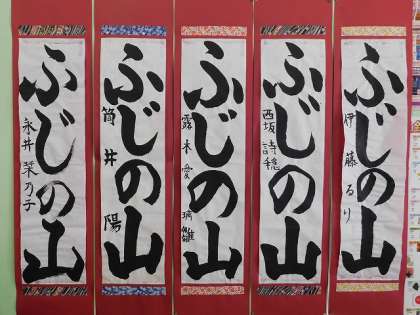 ふじの山
伊藤るり
ふじの山
西坂詩穏
ふじの山
露木愛璃雛
ふじの山
筒井陽
ふじの山
永井菜乃子